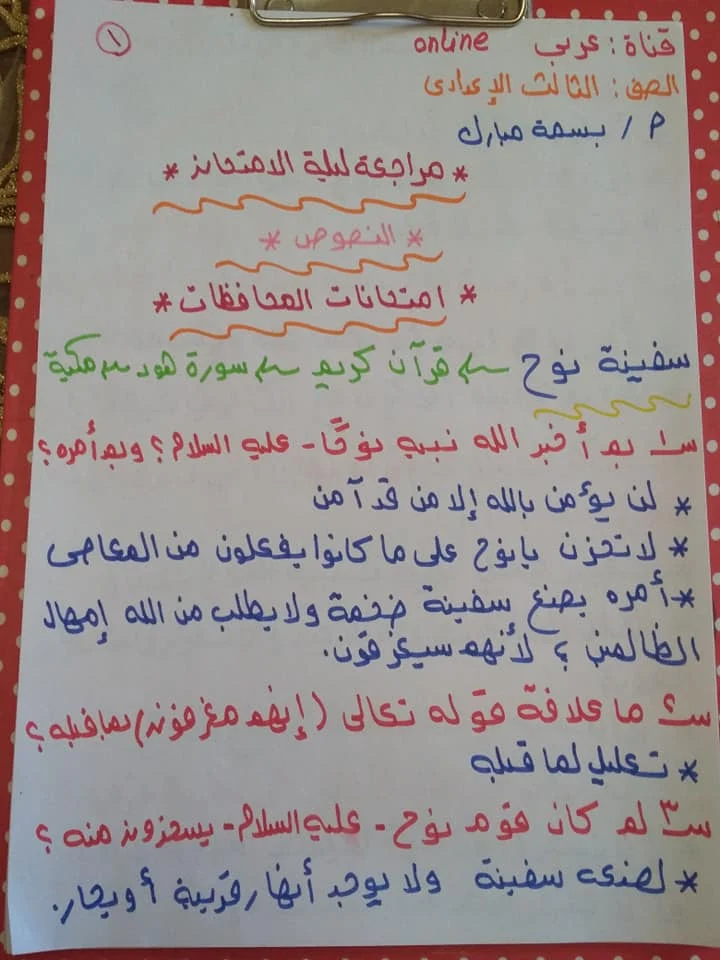 ١
قناة : عربى online
الصف : الثالث الإعدادى
م / بسمة مبارك
* مراجعة ليلة الامتحان *
* النصوص *
* امتحانات المحافظات *
سفينة نوح ← قرآن كريم ← سورة هود ← مكية
س١ بم أخبر الله نبيه نوحًا - عليه السلام ؟ وبم أمره ؟
* لن يؤمن بالله إلا من قد آمن
* لا تحزن يا نوح على ما كانوا يفعلون من المعاصى
* أمره بصنع سفينة ضخمة ولا يطلب من الله إمهال
الظالمين ؛ لأنهم سيغرقون.
س٢ ما علاقة قوله تعالى (إنهم مغرقون) بما قبله ؟
* تعليل لما قبله
س٣ لم كان قوم نوح - عليه السلام - يسخرون منه ؟
* لصنعه سفينة ولا يوجد أنهار قريبة أو بحار.